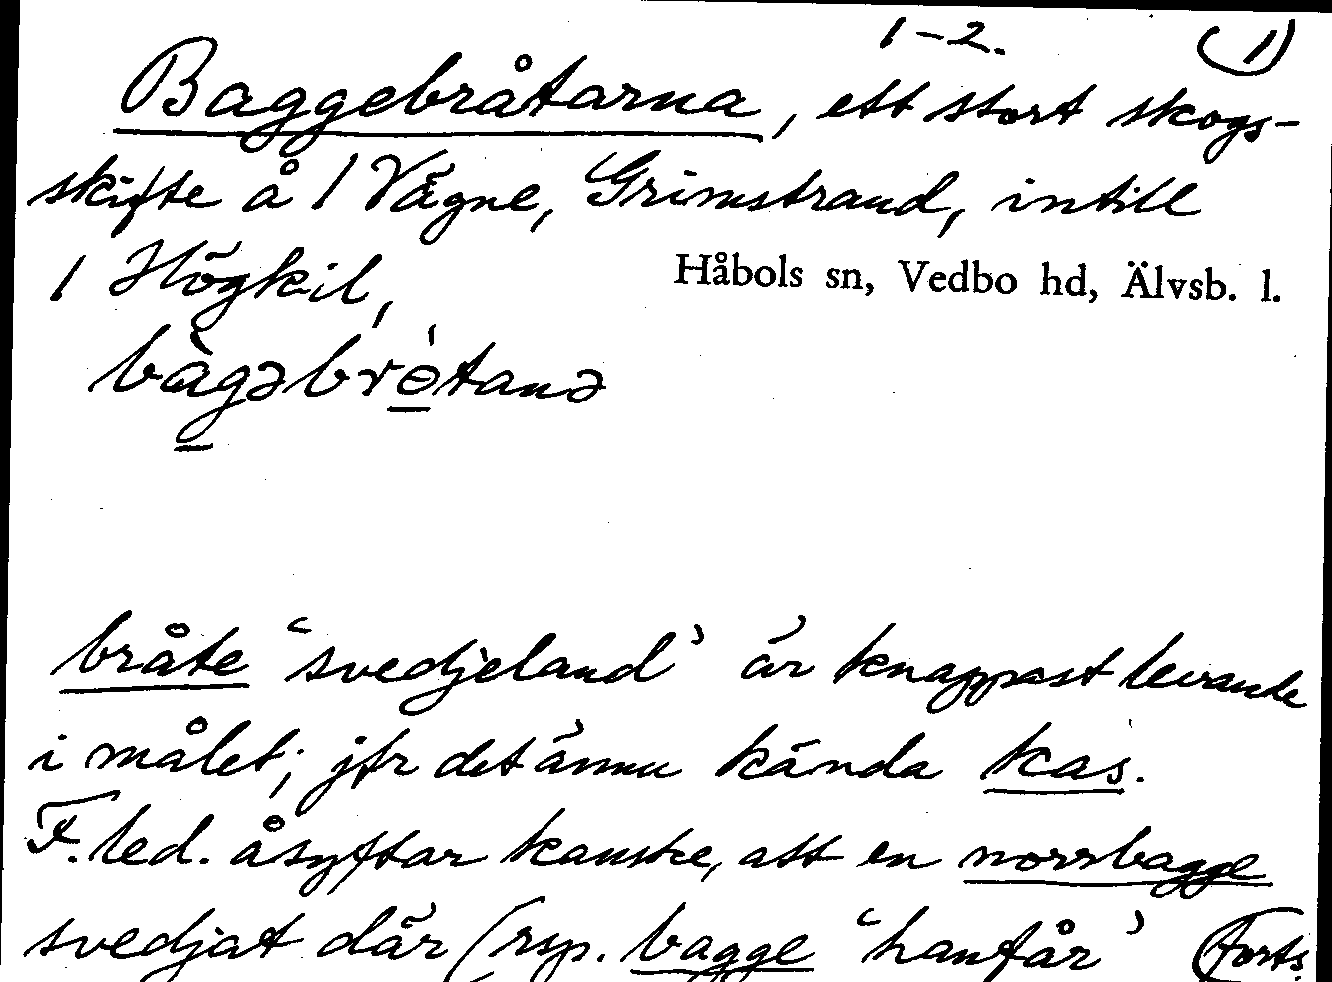 1-2. (1)
Baggebråtarna, ett stort skogs-
skifte å 1 Vägne, Grimstrand, intill
1 Högkil, Håbols sn, Vedbo hd, Älvsb. l.
bàgəbrótanə
bråte 'svedjeland' är knappast levande
i målet; jfr det ännu kända kas.
F.led. åsyftar kanske, att en norrbagge
svedjat där (rsp. bagge 'hanfår' (Forts.